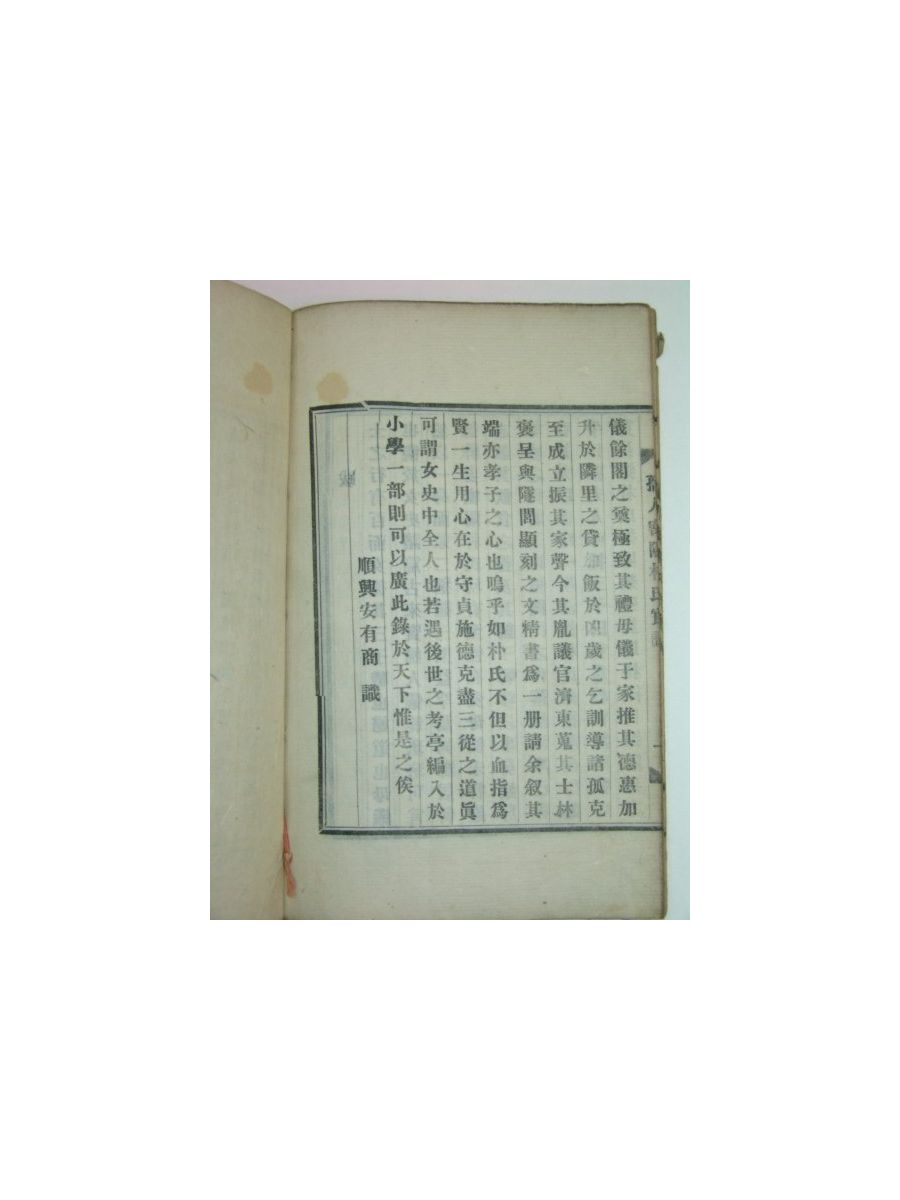 儀餘閣之奠極致其禮母儀于家推其德惠加
升於隣里之貸加飯於凶歲之乞訓導諸孤克
至成立振其家聲今其胤議官濟東蒐其士林
褒呈與隧閭顯刻之文精書爲一册請余叙其
端亦孝子之心也嗚乎如朴氏不但以血指爲
賢一生用心在於守貞施德克盡三從之道眞
可謂女史中全人也若遇後世之考亭編入於
小學一部則可以廣此錄於天下惟是之俟
順興安有商 識